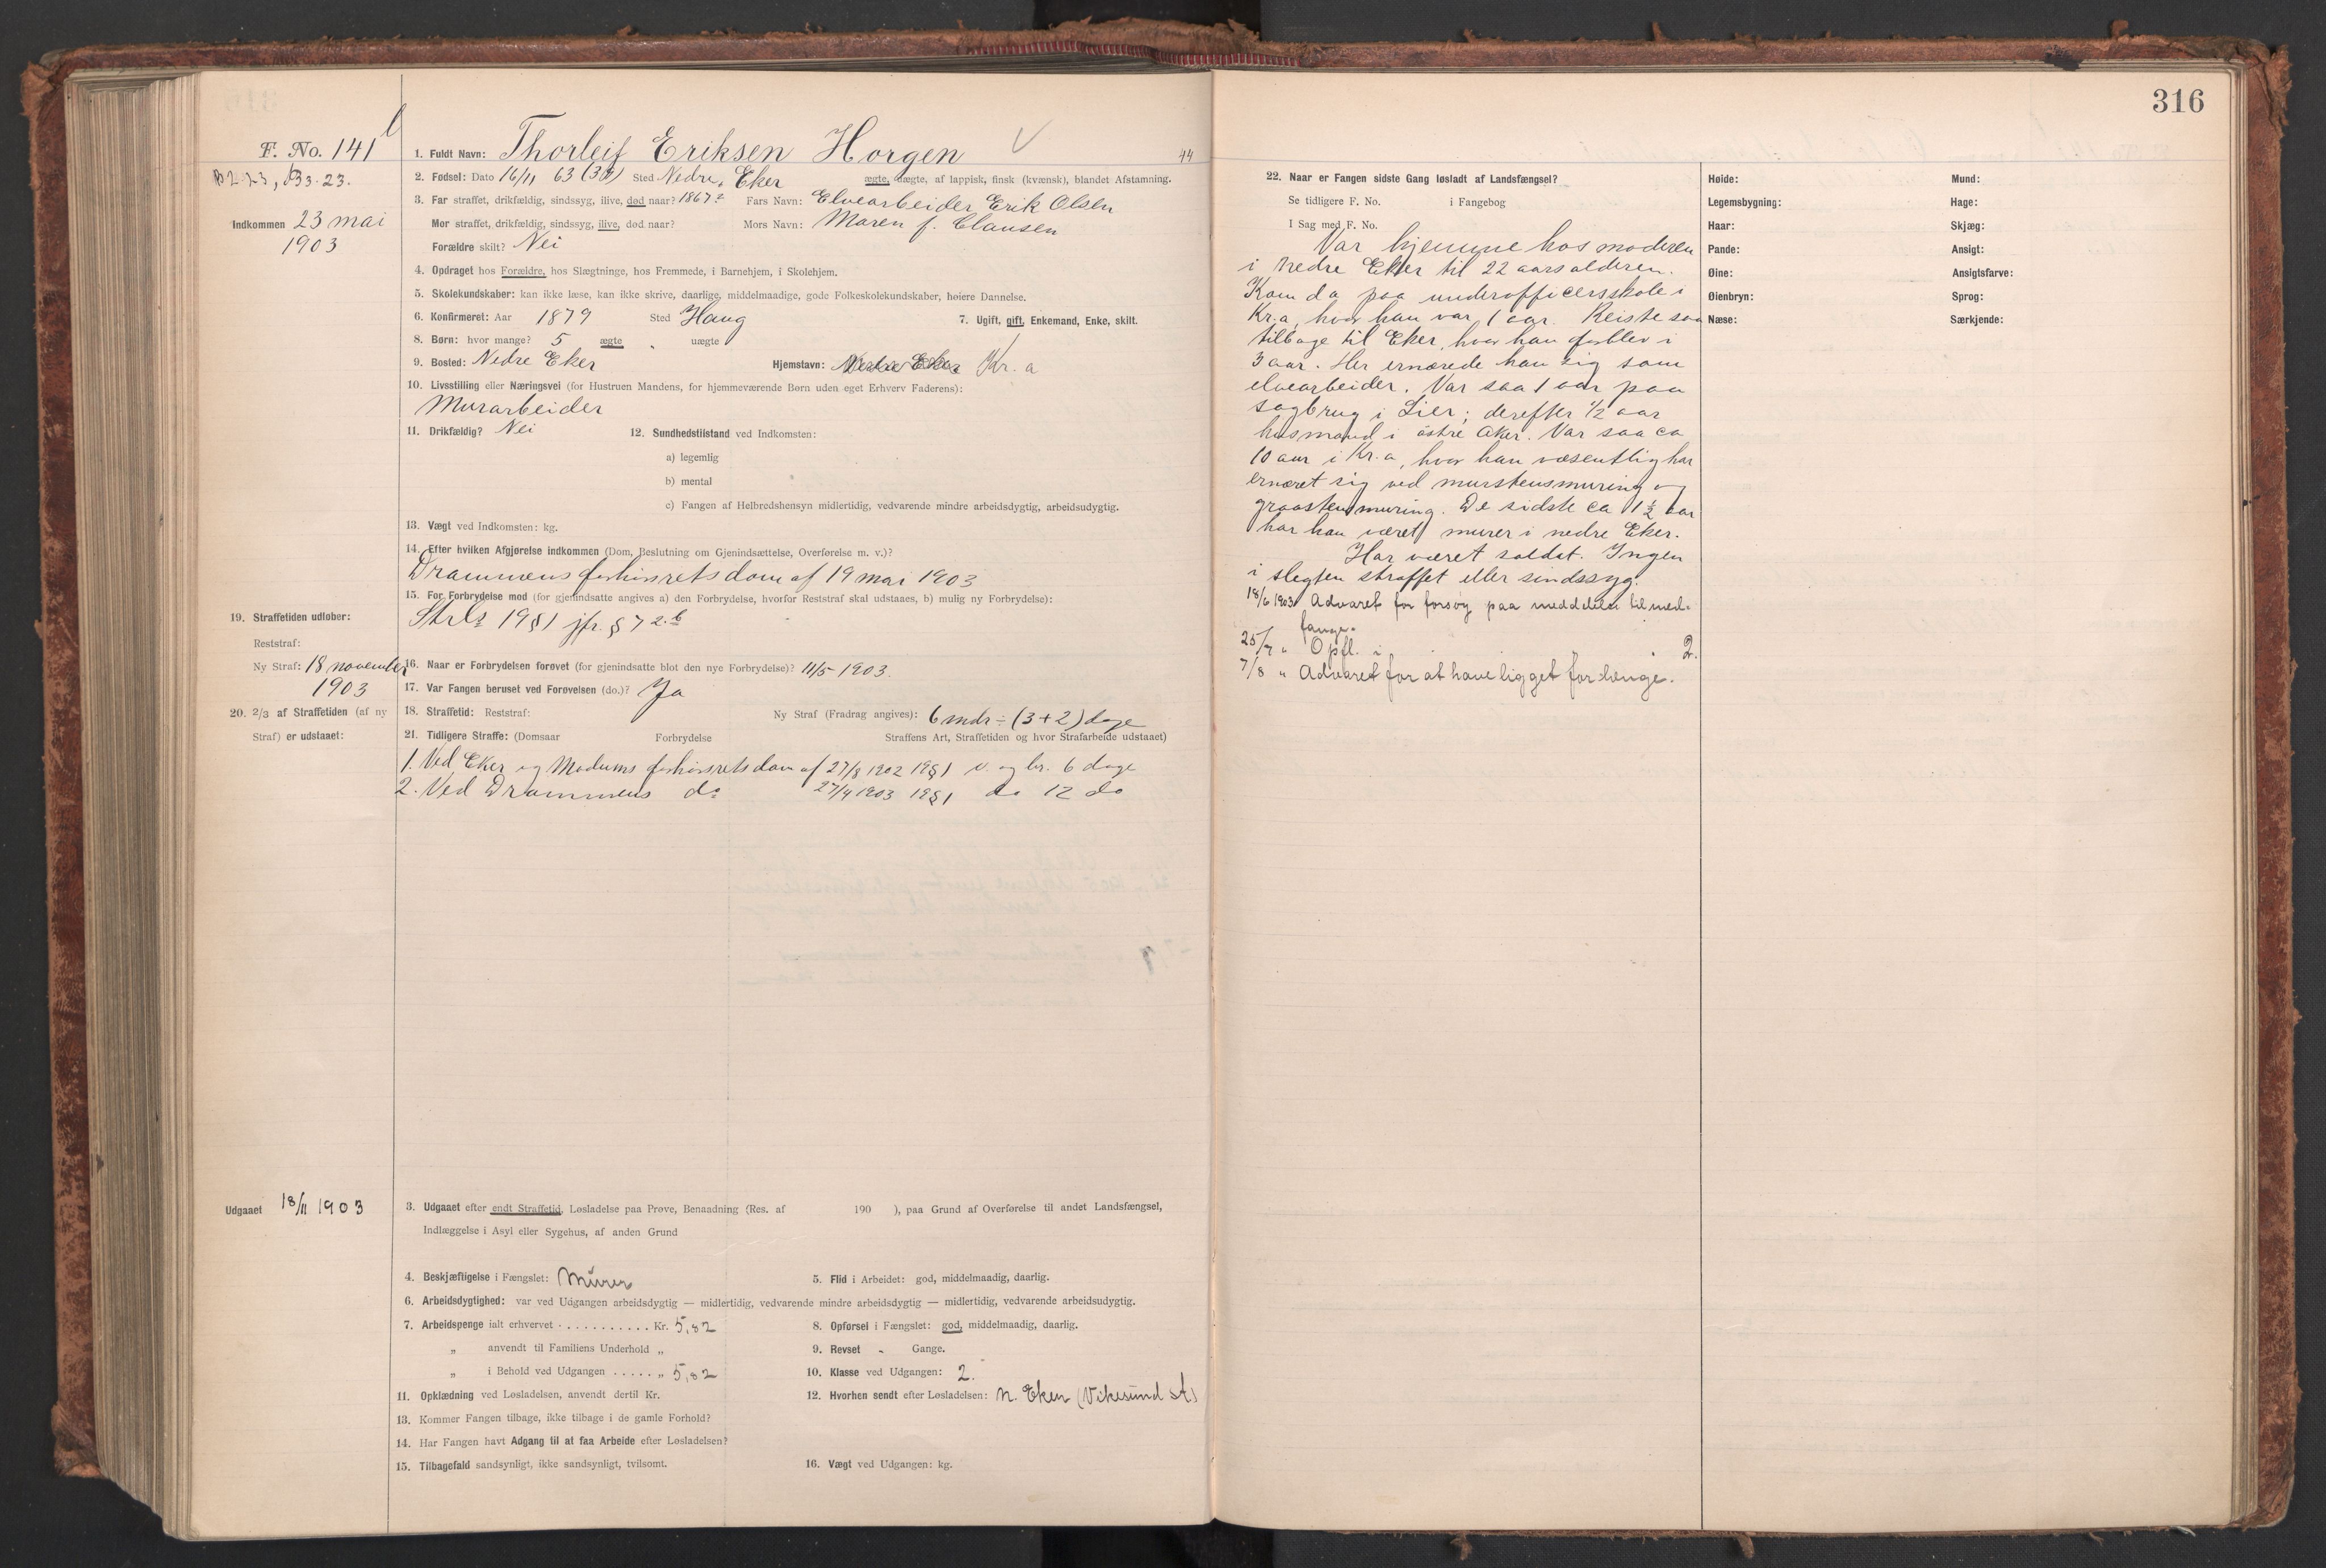 316
F. No. 141
1. Fuldt Navn: Thorleif Eriksen Horgen 44
B2-23, B3-23.
2. Fødsel: Dato 16/11 63 (39) Sted Nedre Eker ægte, uægte, af lappisk, finsk (kvænsk), blandet Afstamning.
3. Far straffet, drikfældig, sindssyg, ilive, død naar? 1867? Fars Navn: Elvearbeider Erik Olsen
Indkommen 23 mai
1903
Mor straffet, drikfældig, sindssyg, ilive, død naar? Mors Navn: Maren f. Clausen
Forældre skilt? Nei
4. Opdraget hos Forældre, hos Slægtninge, hos Fremmede, i Barnehjem, i Skolehjem.
5. Skolekundskaber: kan ikke læse, kan ikke skrive, daarlige, middelmaadige, gode Folkeskolekundskaber, høiere Dannelse.
6. Konfirmeret: Aar 1879 Sted Haug 7. Ugift, gift, Enkemand, Enke, skilt.
8. Børn: hvor mange? 5 ægte " uægte
9. Bosted: Nedre Eker Hjemstavn: Nedre Eker Kr.a
10. Livsstilling eller Næringsvei (for Hustruen Mandens, for hjemmeværende Børn uden eget Erhverv Faderens):
Murarbeider
11. Drikfældig? Nei 12. Sundhedstilstand ved Indkomsten:
a) legemlig
b) mental
c) Fangen af Helbredshensyn midlertidig, vedvarende mindre arbeidsdygtig, arbeidsudygtig.
13. Vægt ved Indkomsten: kg.
14. Efter hvilken Afgjørelse indkommen (Dom, Beslutning om Gjenindsættelse, Overførelse m. v.)?
Drammens forhørsrets dom af 19 mai 1903
15. For Forbrydelse mod (for gjenindsatte angives a) den Forbrydelse, hvorfor Reststraf skal udstaaes, b) mulig ny Forbrydelse):
Strl. 19 § 1 jfr. § 7 2. b
19. Straffetiden udløber:
Reststraf:
Ny Straf: 18 november
1903
16. Naar er Forbrydelsen forøvet (for gjenindsatte blot den nye Forbrydelse)? 11/5-1903.
17. Var Fangen beruset ved Forøvelsen (do.)? Ja
20. 2/3 af Straffetiden (af ny
Straf) er udstaaet:
18. Straffetid: Reststraf: Ny Straf (Fradrag angives): 6 mdr ÷ (3+2) dage
21. Tidligere Straffe: (Domsaar Forbrydelse Straffens Art, Straffetiden og hvor Strafarbeide udstaaet)
1. Ved Eker og Modums forhørsrets dom af 27/8 1902 19 § 1 v. og br. 6 dage
2. Ved Drammens do 27/4 1903 19 § 1 do 12 do
Udgaaet 18/11 1903
3. Udgaaet efter endt Straffetid, Løsladelse paa Prøve, Benaadning (Res. af 190 ), paa Grund af Overførelse til andet Landsfængsel,
Indlæggelse i Asyl eller Sygehus, af anden Grund
4. Beskjæftigelse i Fængslet: Murer 5. Flid i Arbeidet: god, middelmaadig, daarlig.
6. Arbeidsdygtighed: var ved Udgangen arbeidsdygtig — midlertidig, vedvarende mindre arbeidsdygtig — midlertidig, vedvarende arbeidsudygtig.
7. Arbeidspenge ialt erhvervet . . . . . . . . . . . Kr. 5,82 8. Opførsel i Fængslet: god, middelmaadig, daarlig.
„ anvendt til Familiens Underhold „ 9. Revset - Gange.
„ i Behold ved Udgangen . . . . . „ 5,82 10. Klasse ved Udgangen: 2.
11. Opklædning ved Løsladelsen, anvendt dertil Kr. 12. Hvorhen sendt efter Løsladelsen: N. Eker (Vikesund st.)
13. Kommer Fangen tilbage, ikke tilbage i de gamle Forhold?
14. Har Fangen havt Adgang til at faa Arbeide efter Løsladelsen?
15. Tilbagefald sandsynligt, ikke sandsynligt, tvilsomt. 16. Vægt ved Udgangen: kg.
22. Naar er Fangen sidste Gang løsladt af Landsfængsel?
Se tidligere F. No. i Fangebog
I Sag med F. No.
Var hjemme hos moderen
i nedre Eker til 22 aarsalderen.
Kom da paa underofficersskole i
Kr.a, hvor han var 1 aar. Reiste saa
tilbage til Eker, hvor han forblev i
3 aar. Her ernærede han sig som
elvearbeider. Var saa 1 aar paa
sagbrug i Lier; derefter 1/2 aar
husmand i østre Aker. Var saa ca
10 aar i Kr.a, hvor han væsentlig har
ernæret sig ved murstensmuring og
graastensmuring. De sidste ca 1 1/2 aar
har han været murer i nedre Eker.
Har været soldat. Ingen
i slegten straffet eller sindssyg.
18/6 1903 Advaret for forsøg paa meddelelse til med-
fange.
25/7 " Opfl. i 2.
7/8 " Advaret for at have ligget for længe.
Høide: Mund:
Legemsbygning: Hage:
Haar: Skjæg:
Pande: Ansigt:
Øine: Ansigtsfarve:
Øienbryn: Sprog:
Næse: Særkjende: